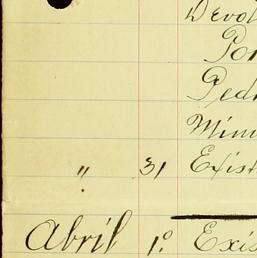 Devol
Por
Ped
Mim
" 31 Exist
Abril 1º Exis